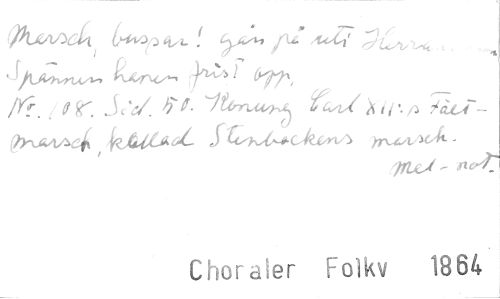 Marsch, bussar! gån på uti
Spännen hanen frist opp,
No. 108. Sid. 50. Konung Carl XII:s Fält-
marsch, kallad Stenbockens marsch.
Mel-not.
Choraler Folkv 1864